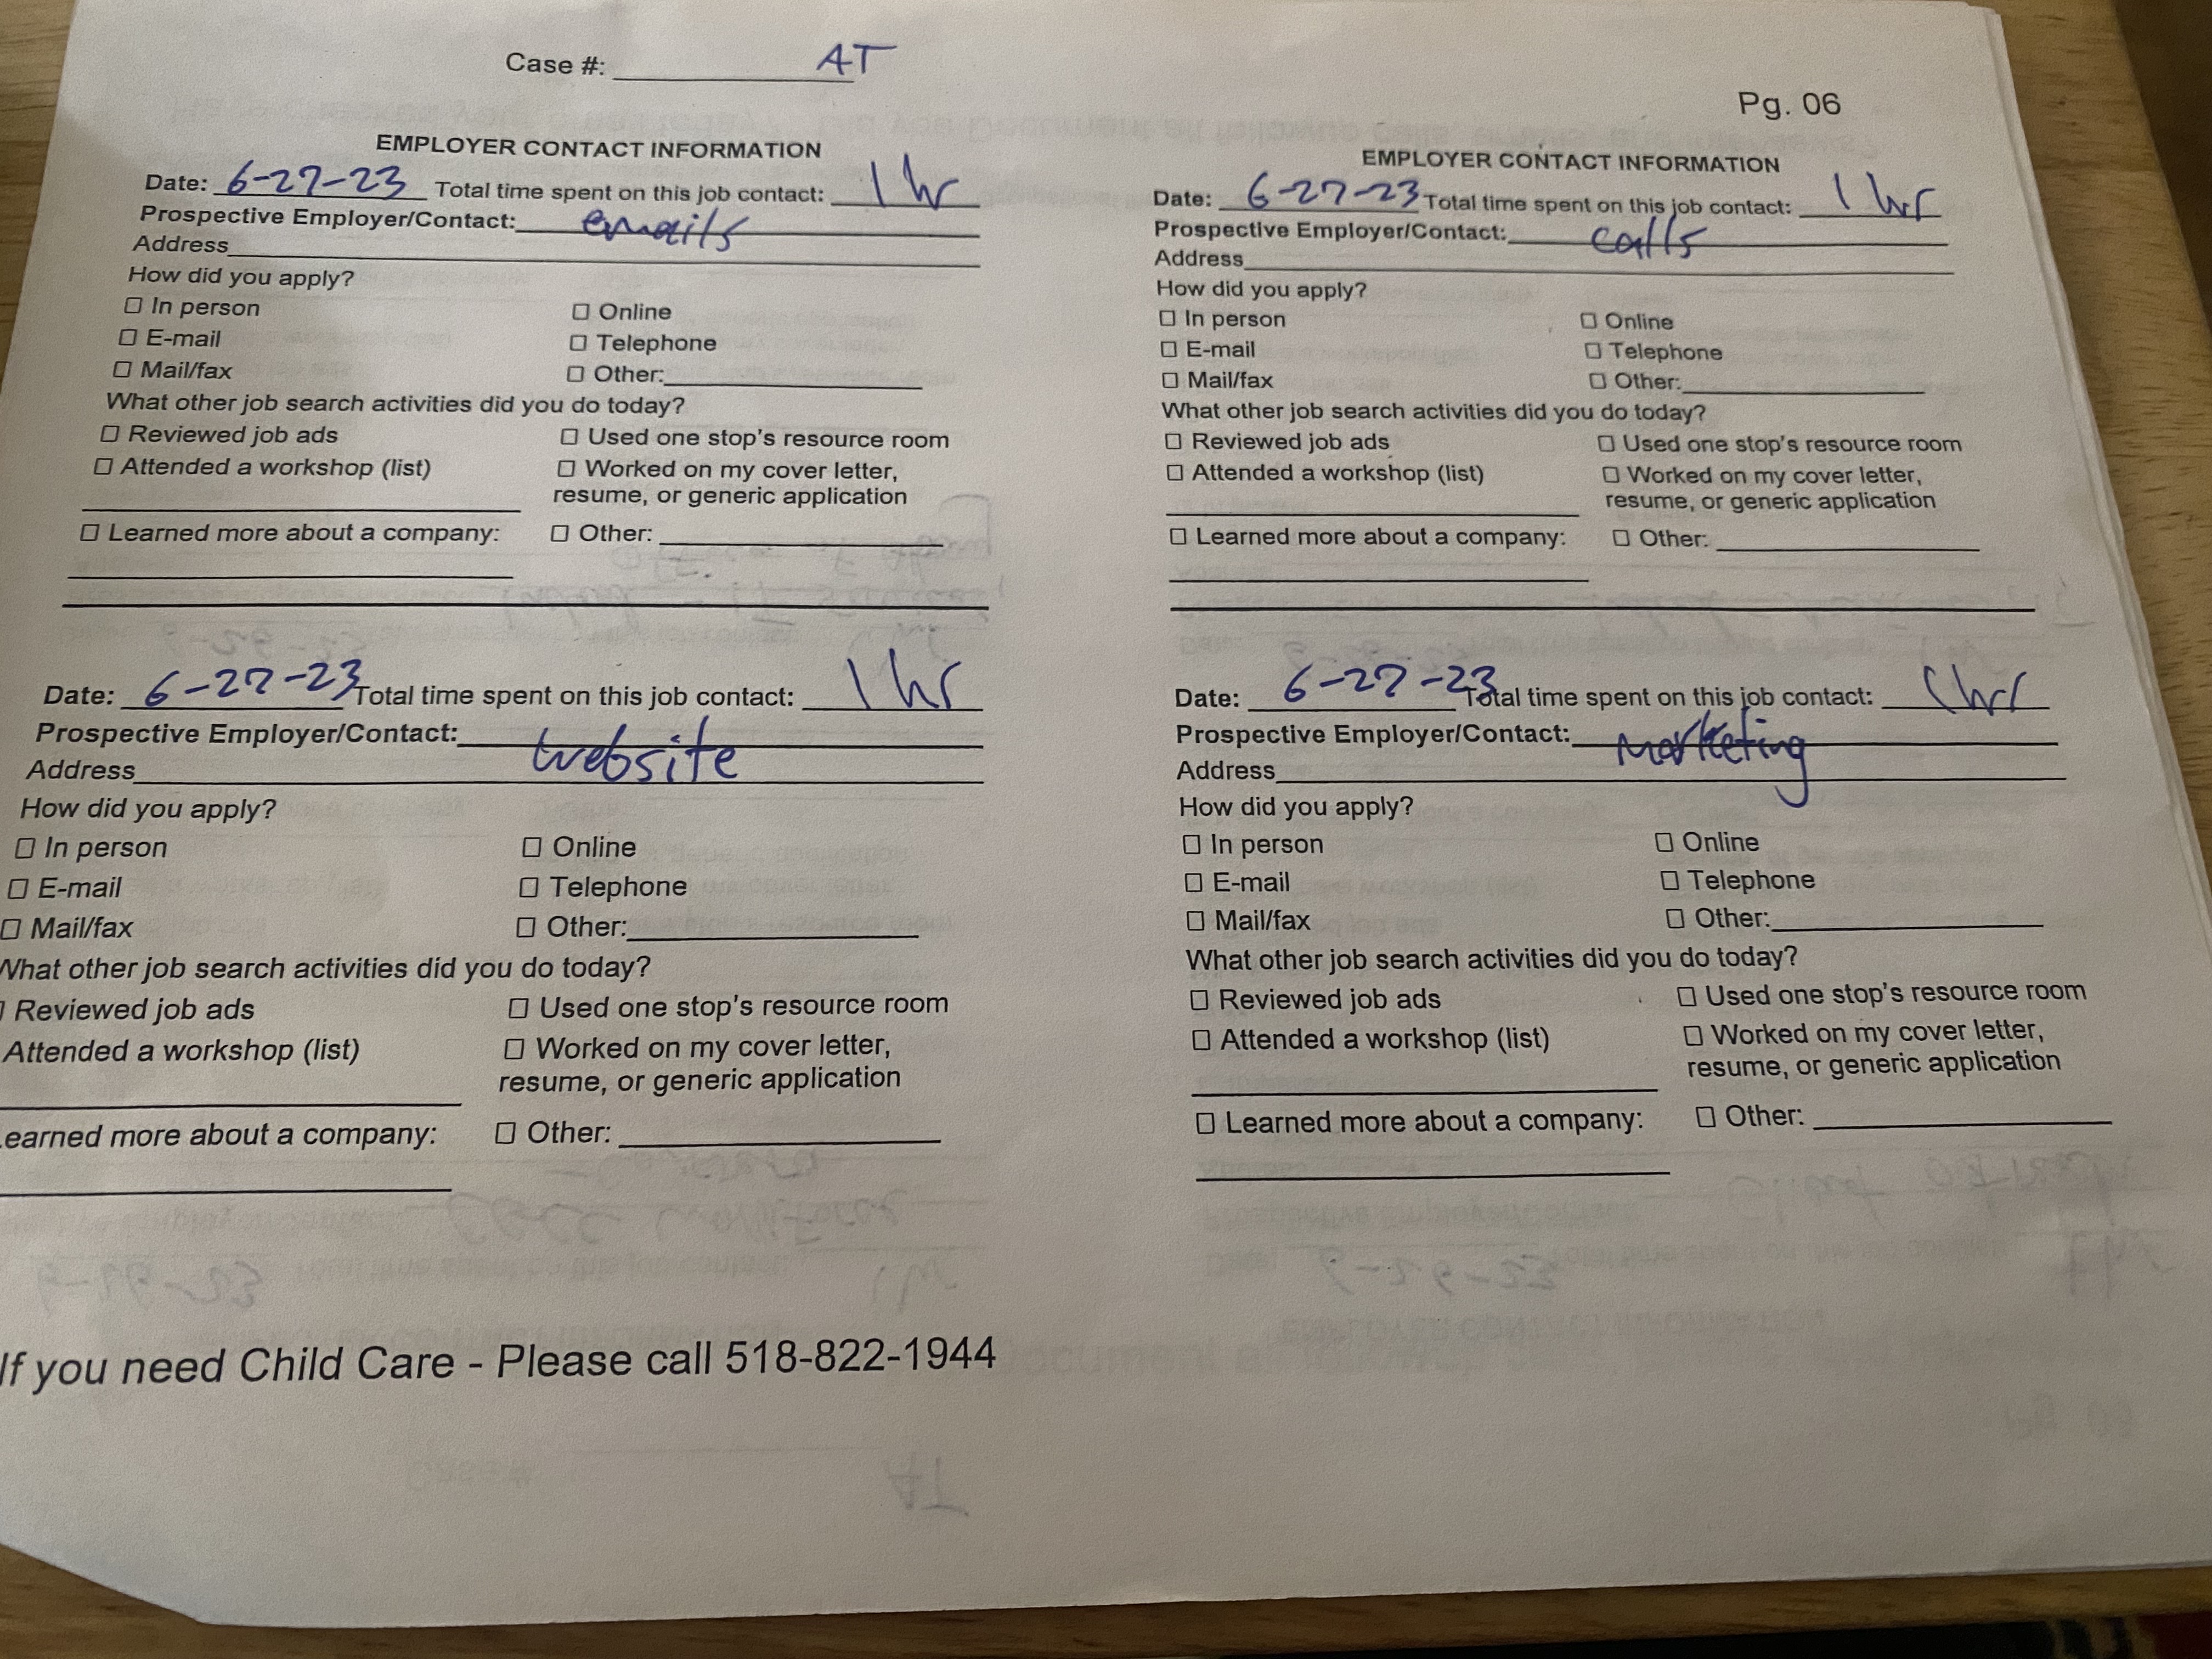 Case #: AT
Pg. 06
EMPLOYER CONTACT INFORMATION
Date: 6-27-23 Total time spent on this job contact: 1 hr
Prospective Employer/Contact: emails
Address
How did you apply?
☐ In person ☐ Online
☐ E-mail ☐ Telephone
☐ Mail/fax ☐ Other:
What other job search activities did you do today?
☐ Reviewed job ads ☐ Used one stop's resource room
☐ Attended a workshop (list) ☐ Worked on my cover letter,
resume, or generic application
☐ Learned more about a company: ☐ Other:
EMPLOYER CONTACT INFORMATION
Date: 6-27-23 Total time spent on this job contact: 1 hr
Prospective Employer/Contact: calls
Address
How did you apply?
☐ In person ☐ Online
☐ E-mail ☐ Telephone
☐ Mail/fax ☐ Other:
What other job search activities did you do today?
☐ Reviewed job ads ☐ Used one stop's resource room
☐ Attended a workshop (list) ☐ Worked on my cover letter,
resume, or generic application
☐ Learned more about a company: ☐ Other:
Date: 6-27-23 Total time spent on this job contact: 1 hr
Prospective Employer/Contact: website
Address
How did you apply?
☐ In person ☐ Online
☐ E-mail ☐ Telephone
☐ Mail/fax ☐ Other:
What other job search activities did you do today?
Reviewed job ads ☐ Used one stop's resource room
Attended a workshop (list) ☐ Worked on my cover letter,
resume, or generic application
earned more about a company: ☐ Other:
Date: 6-27-23 Total time spent on this job contact: 1 hr
Prospective Employer/Contact: marketing
Address
How did you apply?
☐ In person ☐ Online
☐ E-mail ☐ Telephone
☐ Mail/fax ☐ Other:
What other job search activities did you do today?
☐ Reviewed job ads ☐ Used one stop's resource room
☐ Attended a workshop (list) ☐ Worked on my cover letter,
resume, or generic application
☐ Learned more about a company: ☐ Other:
If you need Child Care - Please call 518-822-1944